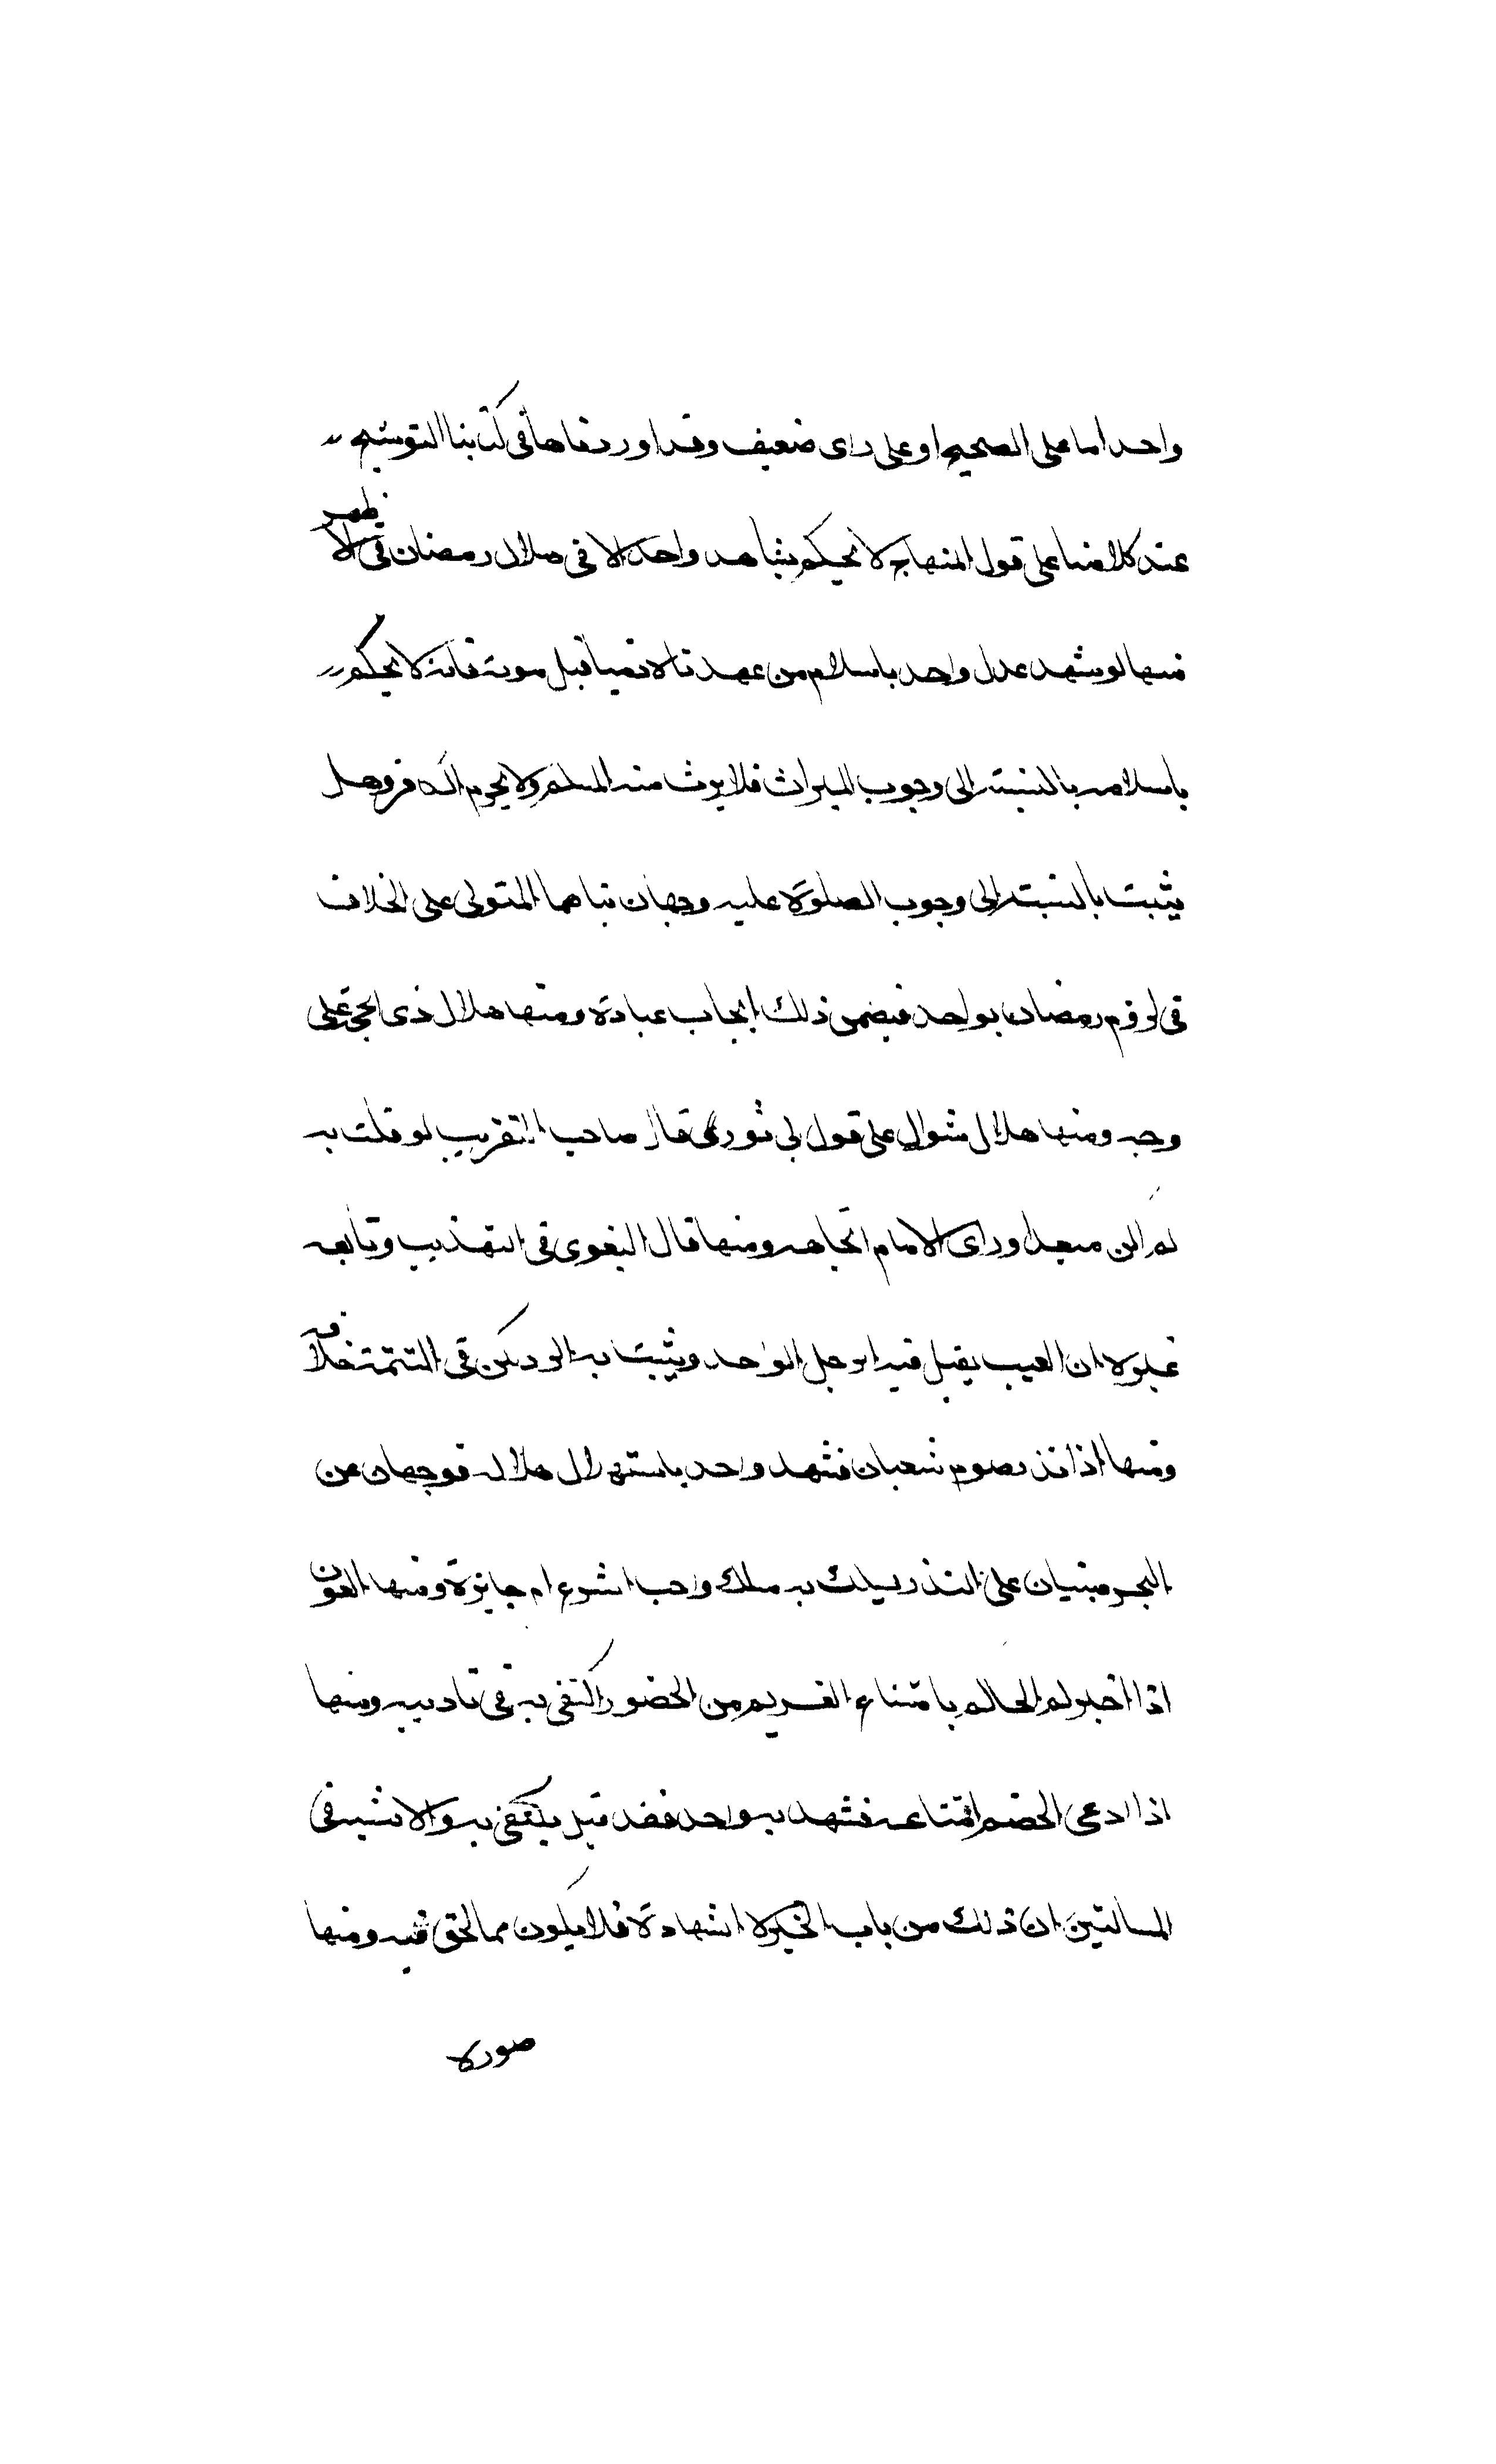 واحد اما على الصحيح او على راى ضعيف وقد اوردناها فى كتابنا التوشيح
عند كلامنا على قول المنهاج لا يحكم بشاهد واحد الا فى هلال رمضان فى الاظهر
منها لو شهد عدل واحد باسلام من عهدناه ذميا قبل موته فانه لا يحكم
باسلامه بالنسبة الى وجوب الميراث فلا يرث منه المسلم ولا يحرم الكافر وهل
يثبت بالنسبة الى وجوب الصلوة عليه وجهان بناهما المتولى على الخلاف
فى لزوم رمضان بواحد فيضمن ذلك ايجاب عبادة ومنها هلال ذى الحجة على
وجه ومنها هلال شوال على قول ابى ثور قال صاحب التقريب لو قلت به
لم اكن مبعدا وراى الامام اتجاهه ومنها قال البغوى فى التهذيب وتابعه
غيره ان العيب يقبل فيه الرجل الواحد ويثبت به الرد لكن فى التتمة خلافه
ومنها اذا نذر صوم شعبان فشهد واحد باستهلال هلاله فوجهان عن
البحر مبنيان على النذر يسلك به مسلك واجب الشرع ام جايزة ومنها العون
اذا اخبر الحاكم بامتناع الغريم من الحضور اكتفى به فى تاديبه ومنها
اذا ادعى الخصم امتناعه فشهد به واحد فقد قيل يكتفى به والاشبه فى
المسالتين ان ذلك من باب الخبر لا الشهادة فلا يكون مما نحن فيه ومنها
صورة